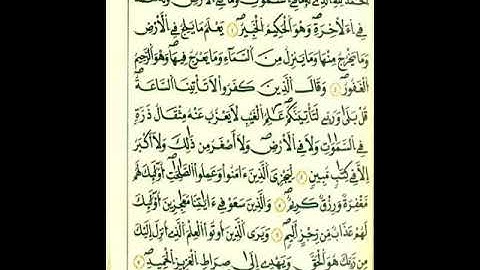 الحمد لله الذي له ما في السموت وما في الأرض وله الحمد
في الاخرة وهو الحكيم الخبير ۝ يعلم ما يلج في الأرض
وما يخرج منها وما ينزل من السماء وما يعرج فيها وهو الرحيم
الغفور ۝ وقال الذين كفروا لا تأتينا الساعة
قل بلى وربي لتأتينكم علم الغيب لا يعزب عنه مثقال ذرة
في السموت ولا في الأرض ولا أصغر من ذلك ولا أكبر
إلا في كتب مبين ۝ ليجزي الذين ءامنوا وعملوا الصلحت أولئك لهم
مغفرة ورزق كريم ۝ والذين سعو في ءايتنا معجزين أولئك
لهم عذاب من رجز أليم ۝ ويرى الذين أوتوا العلم الذي أنزل إليك
من ربك هو الحق ويهدي إلى صراط العزيز الحميد ۝